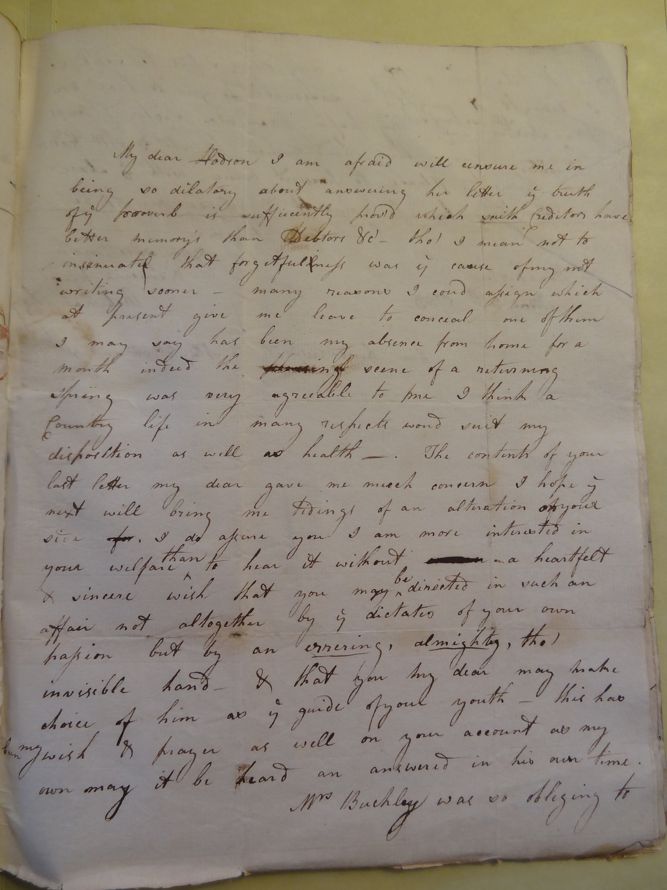 My dear Hodson I am afraid will censure me in
being so dilatory about answering her letter ye truth
of ye proverb is sufficently prov'd which saith Creditors have
better memory's than Debtors &c - tho' I mean not to
insinuate that forgetfullness was ye cause of my not
writing sooner - many reasons I coud assign which
at present give me leave to conceal one of them
I may say has been my absence from home for a
month indeed the scene of a returning
Spring was very agreeable to me I think a
Country life in many respects woud suit my
disposition as well as health - . The contents of your
last letter my dear gave me much concern I hope ye
next will bring me tidings of an alteration of your
I do assure you I am more interested in
your welfare than to hear it without a heartfelt
& sincere wish that you may be directed in such an
affair not altogether by ye dictates of your own
passion but by an errering, almighty, tho'
invisible hand - & that you my dear may make
choice of him as ye guide of your youth - this has
been my wish & prayer as well on your account as my
own may it be heard an answered in his own time.
Mrs Buckley was so obliging to